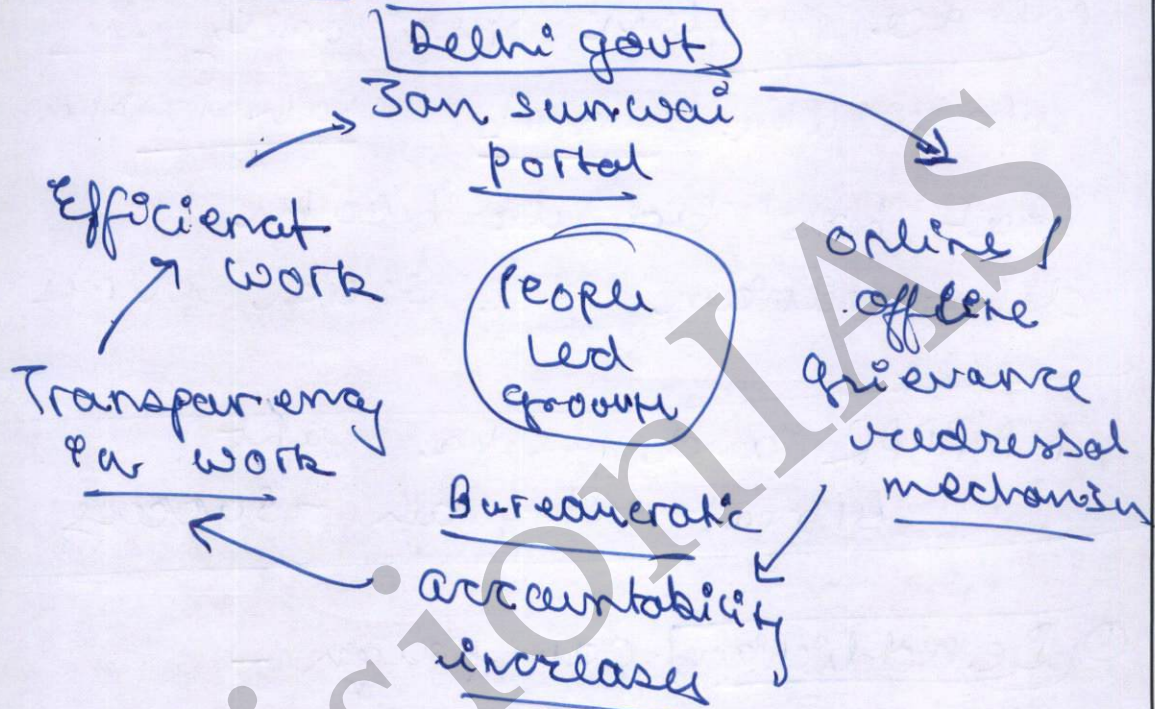 Delhi govt
Jan sunwai
portal
online /
offline
grievance
redressal
mechanism
Bureaucratic
accountability
increases
Transparency
in work
Efficienct
work
People
Led
growth
VisionIAS